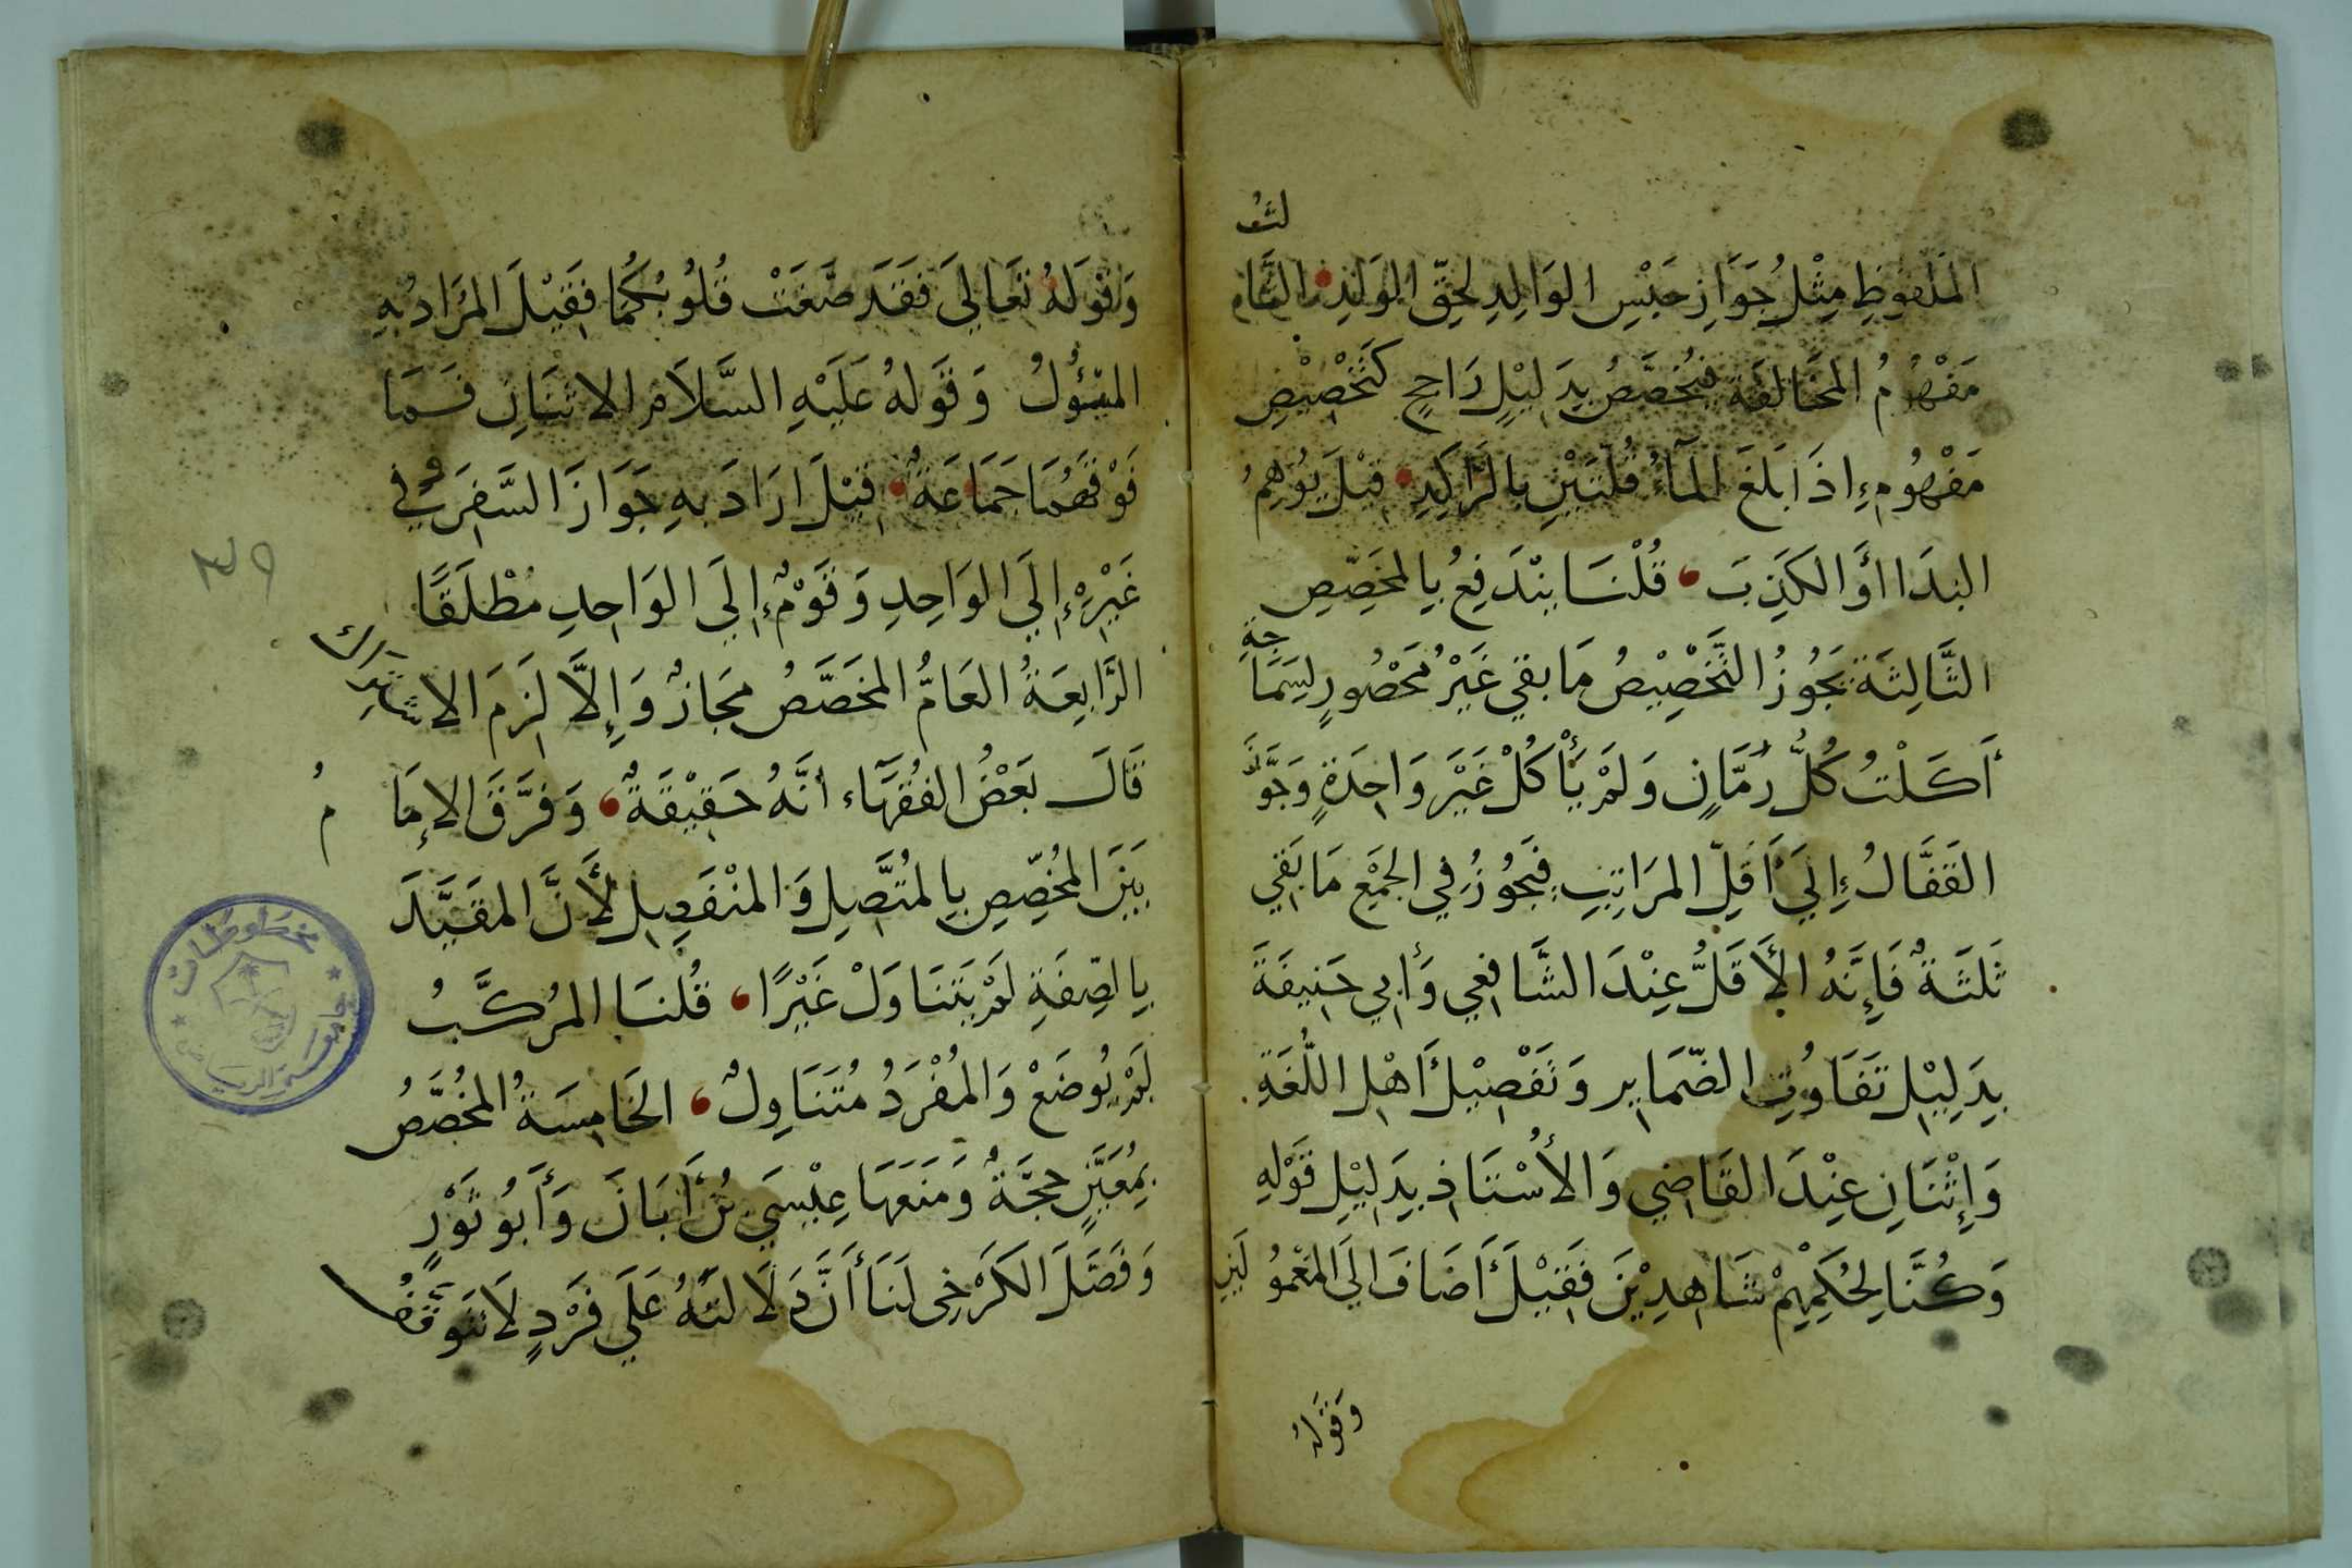 المَلْفُوظِ مِثْلُ جَوَازِ حَبْسِ الوَالِدِ لِحَقِّ الوَلَدِ
مَفْهُومُ المُخَالَفَةِ فَيُخَصَّصُ بِدَلِيْلٍ رَاجِحٍ كَتَخْصِيْصِ
مَفْهُومِ إِذَا بَلَغَ المَآءُ قُلَّتَيْنِ بِالرَّاكِدِ قِيْلَ يُوْهِمُ
البَدَا أَوِ الكَذِبَ قُلْنَا يَنْدَفِعُ بِالمُخَصِّصِ
الثَّالِثَةُ يَجُوزُ التَّخْصِيْصُ مَا بَقِيَ غَيْرُ مَحْصُورٍ لِسَمَاجَةِ
أَكَلْتُ كُلَّ رُمَّانٍ وَلَمْ يَأْكُلْ غَيْرَ وَاحِدَةٍ وَجَوَّزَ
القَفَّالُ إِلَى أَقَلِّ المَرَاتِبِ فَيَجُوزُ فِي الجَمْعِ مَا بَقِيَ
ثَلَثَةٌ فَإِنَّهُ الأَقَلُّ عِنْدَ الشَّافِعِي وَأَبِي حَنِيفَةَ
بِدَلِيْلِ تَفَاوُتِ الضَّمَايِرِ وَتَفْصِيْلِ أَهْلِ اللُّغَةِ
وَإِثْنَانِ عِنْدَ القَاضِي وَالأُسْتَاذِ بِدَلِيْلِ قَوْلِهِ
وَكُنَّا لِحُكْمِهِمْ شَاهِدِيْنَ فَقِيْلَ أَضَافَ إِلَى المَعْمُولَيْنِ
وَقَوْلُهُ
وَقَوْلُهُ تَعَالَى فَقَدْ صَغَتْ قُلُوبُكُمَا فَقِيْلَ المُرَادُ بِهِ
المُيُوْلُ وَقَوْلُهُ عَلَيْهِ السَّلَامُ الاثْنَانِ فَمَا
فَوْقَهُمَا جَمَاعَةٌ قِيْلَ ارَادَ بِهِ جَوَازَ السَّفَرِ وَفِي
غَيْرِهِ إِلَى الوَاحِدِ وَقَوْمٌ إِلَى الوَاحِدِ مُطْلَقًا
الرَّابِعَةُ العَامُّ المُخَصَّصُ مَجَازٌ وَإِلَّا لَزِمَ الاشْتِرَاكُ
قَالَ بَعْضُ الفُقَهَاءِ انَّهُ حَقِيْقَةٌ وَفَرَّقَ الإِمَامُ
بَيْنَ المُخَصَّصِ بِالمُتَّصِلِ وَالمُنْفَصِلِ لأَنَّ المُقَيَّدَ
بِالصِّفَةِ لَمْ يَتَنَاوَلْ غَيْرًا قُلْنَا المُرَكَّبُ
لَمْ يُوضَعْ وَالمُفْرَدُ مُتَنَاوِلٌ الخَامِسَةُ المُخَصَّصُ
بِمُعَيَّنٍ حُجَّةٌ وَمَنَعَهَا عِيْسَى بْنُ أَبَانَ وَأَبُو ثَوْرٍ
وَفَصَّلَ الكَرْخِي لَنَا أَنَّ دَلَالَتَهُ عَلَى فَرْدٍ لَا تَتَوَقَّفُ
مخطوطات
جامعة الرياض